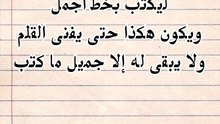 ليكتب بخط أجمل
ويكون هكذا حتى يفنى القلم
ولا يبقى له إلا جميل ما كتب